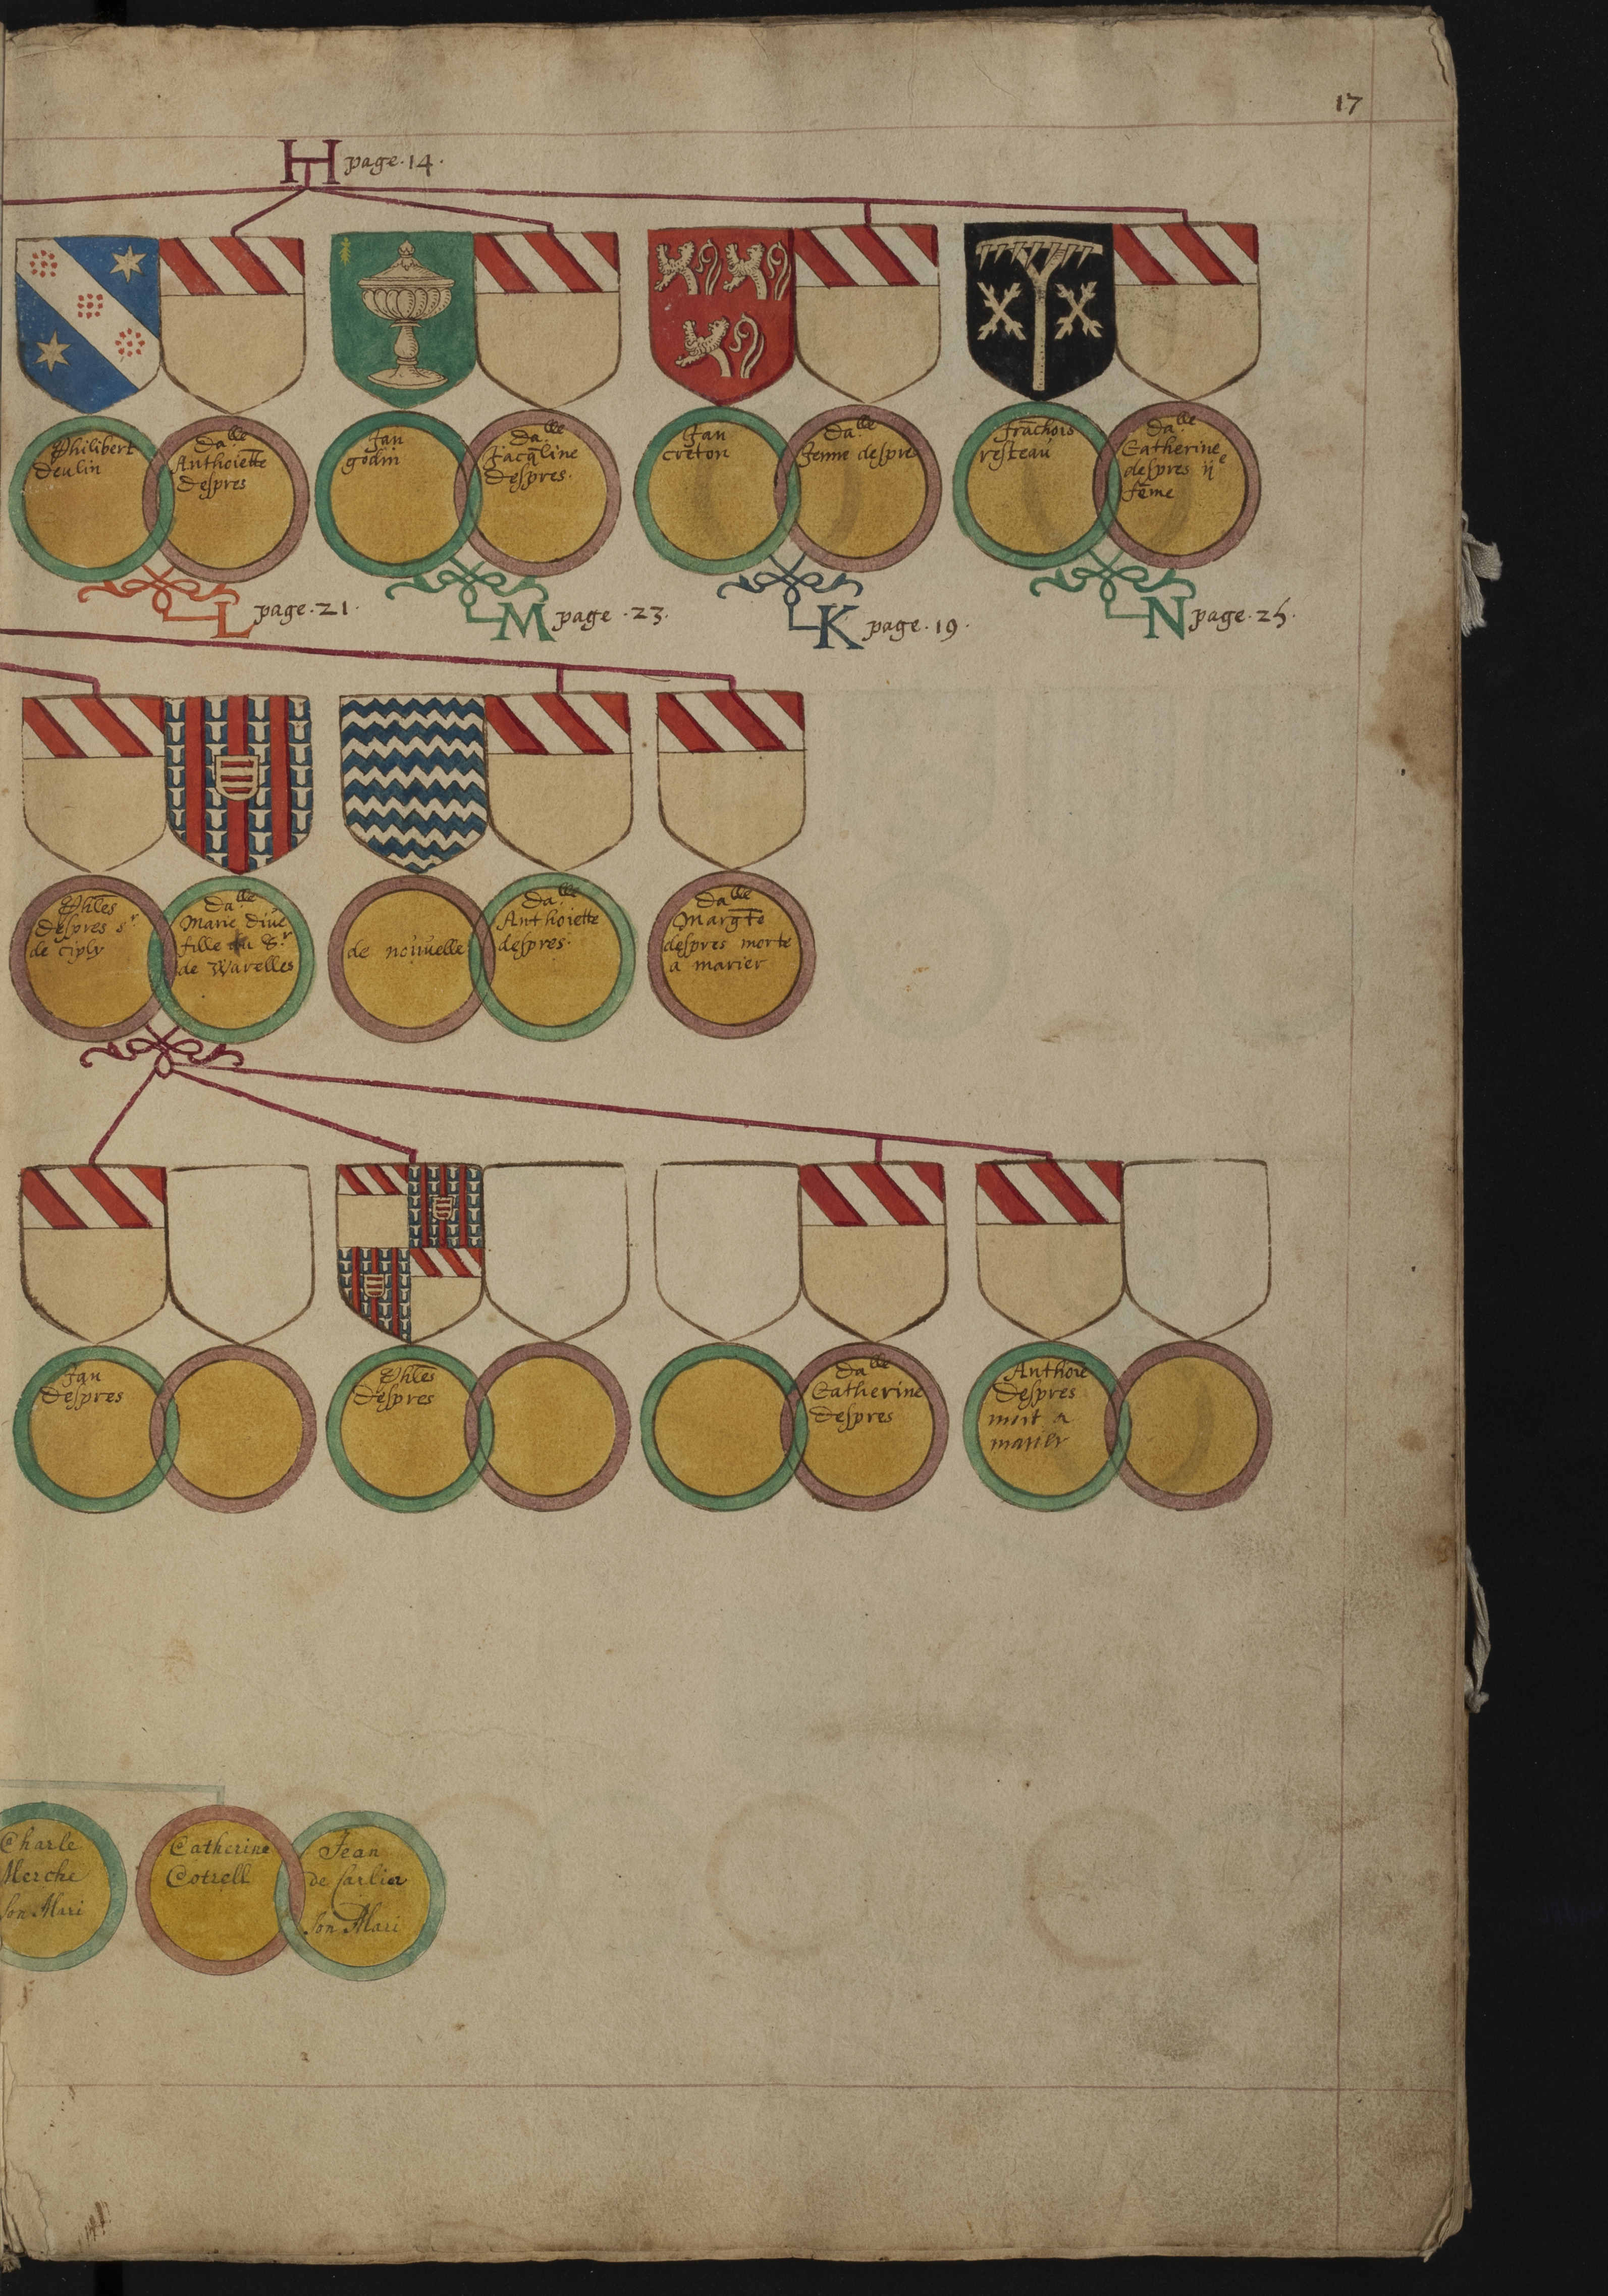 17
H page.14.
Philibert
deulin
Da.lle
Anthoiette
despres
Jan
godin
Da.lle
Jacqline
despres.
Jan
creton
Da.lle
Jenne despre
frachois
resteau
Da.lle
Catherine
despres ije
feme
L page.21.
M page.23.
K page.19.
N page.25.
Phles
despres sr
de ciply
Da.lle
Marie dive
fille du Sr
de Warelles
de nouvelle
Da.lle
Anthoiette
despres.
Da.lle
Margte
despres morte
a marier
Jan
despres
Phles
despres
Da.lle
Catherine
despres
Anthoie
despres
mort a
marier
Charle
Merche
son Mari
Catherine
Cotrell
Jean
de Carlier
son Mari